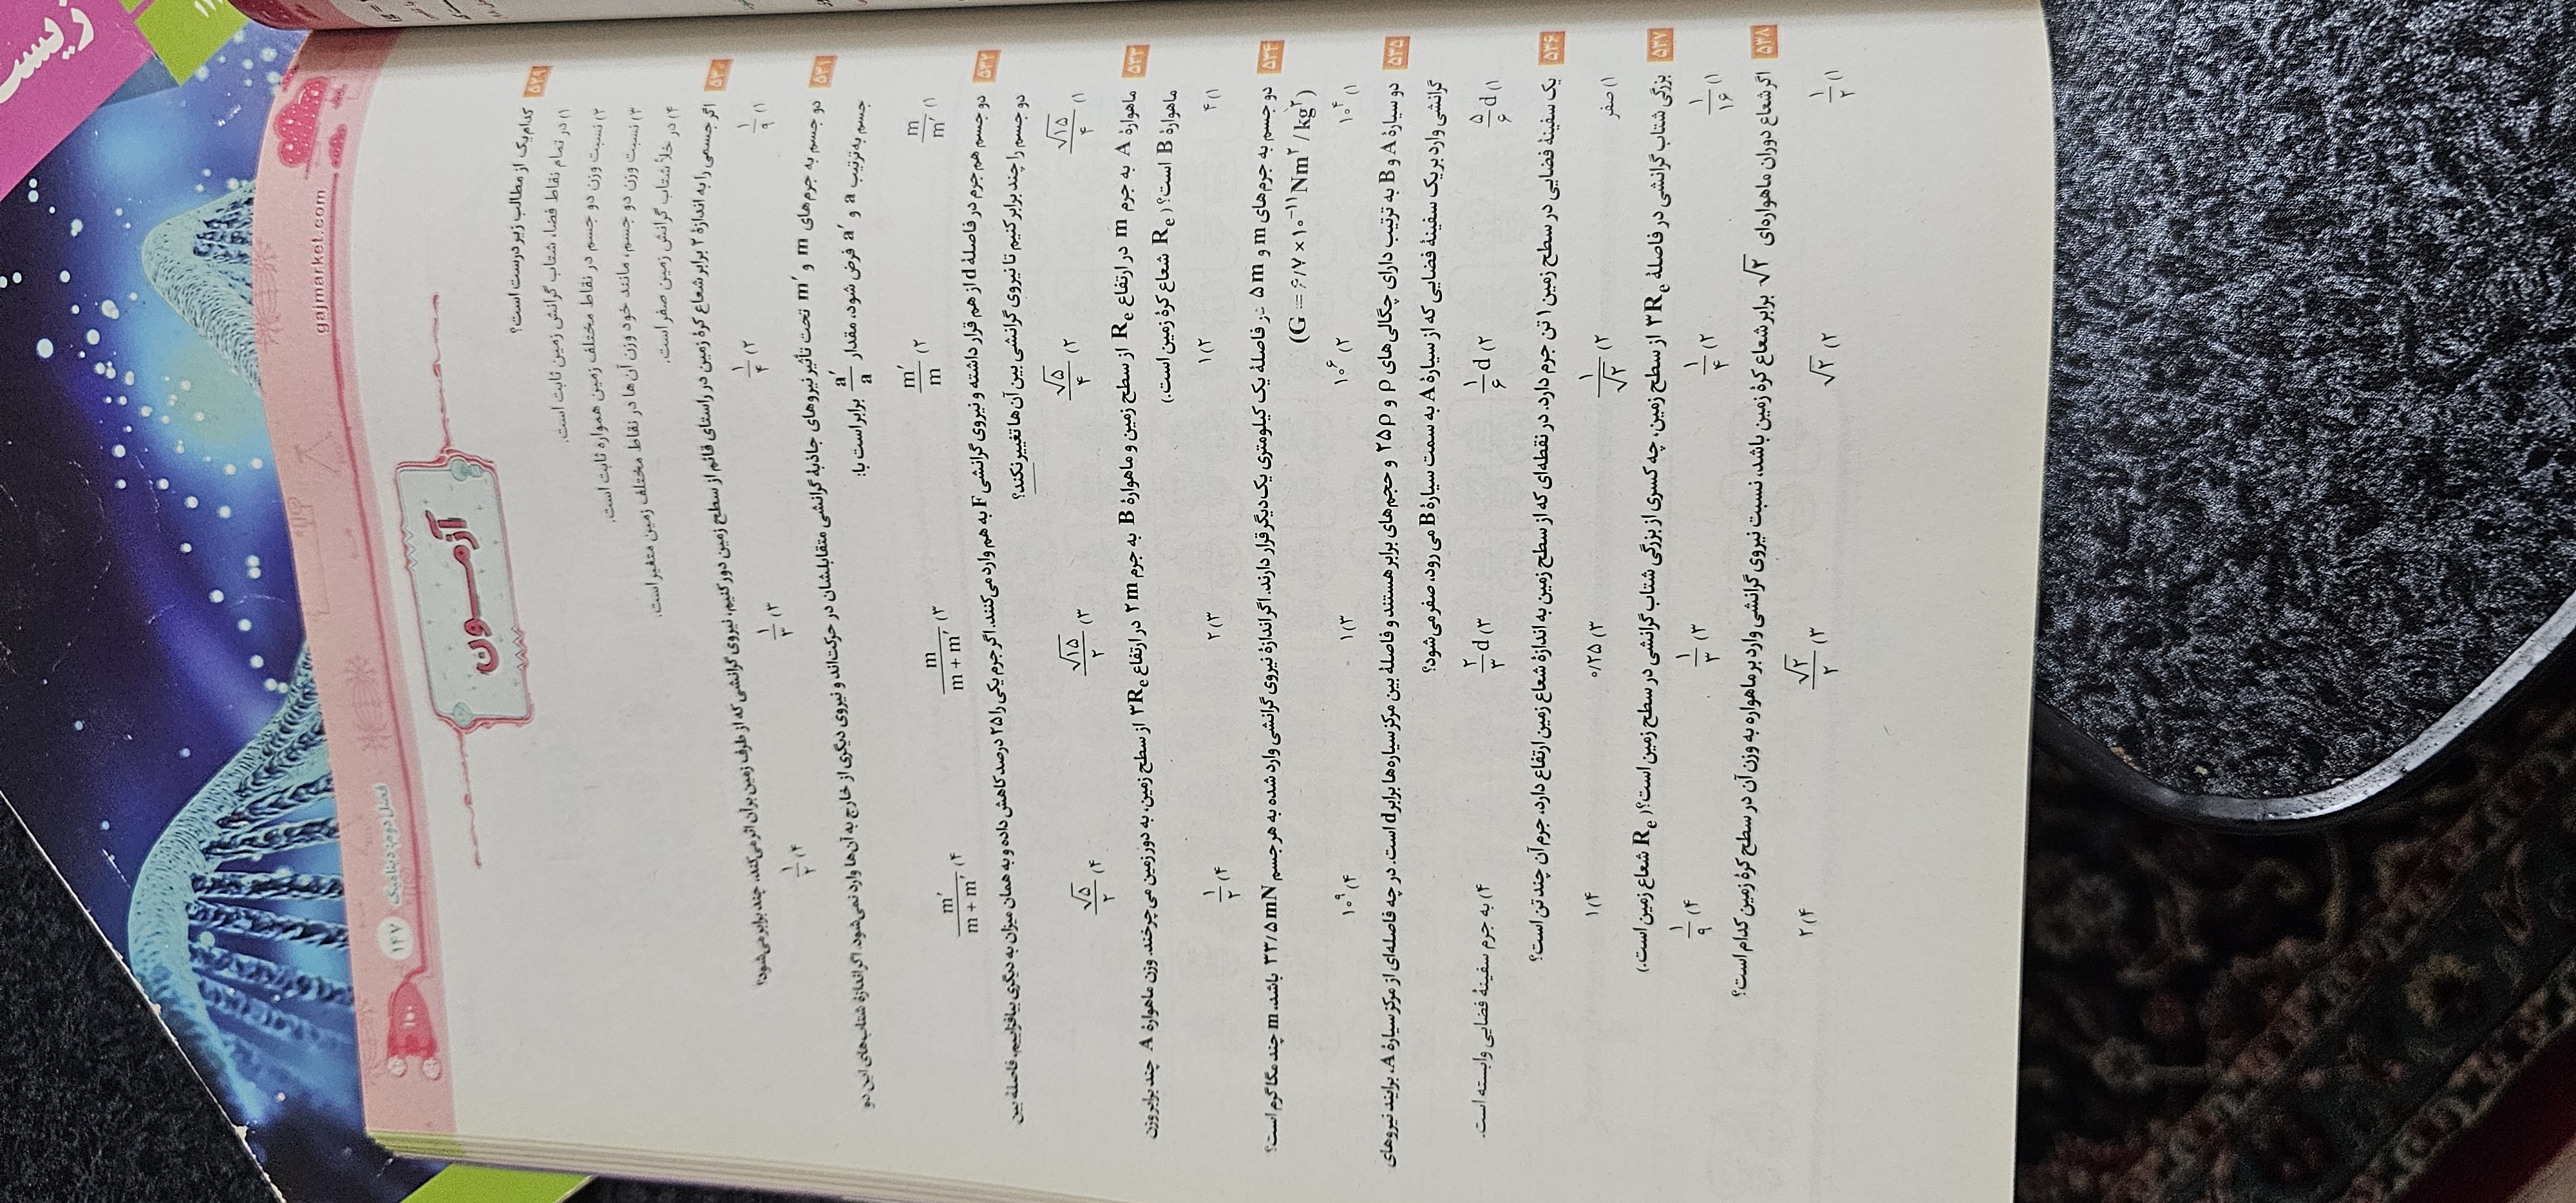 زیست
gajmarket.com
فصل دوم: دینامیک
۱۴۷
۱۰۰
آزمــون
۵۲۹ کدام یک از مطالب زیر درست است؟
۱) در تمام نقاط فضا، شتاب گرانش زمین ثابت است.
۲) نسبت وزن دو جسم در نقاط مختلف زمین همواره ثابت است.
۳) نسبت وزن دو جسم، مانند خود وزن آن‌ها در نقاط مختلف زمین متغیر است.
۴) در خلأ شتاب گرانش زمین صفر است.
۵۳۰ اگر جسمی را به اندازهٔ ۲ برابر شعاع کرهٔ زمین در راستای قائم از سطح زمین دور کنیم، نیروی گرانشی که از طرف زمین بر آن اثر می‌کند، چند برابر می‌شود؟
۱) ۱/۹ ۲) ۱/۴ ۳) ۱/۳ ۴) ۱/۲
۵۳۱ دو جسم به جرم‌های m و m′ تحت تأثیر نیروهای جاذبهٔ گرانشی متقابلشان در حرکت‌اند و نیروی دیگری از خارج به آن‌ها وارد نمی‌شود. اگر اندازهٔ شتاب‌های این دو
جسم به ترتیب a و a′ فرض شود، مقدار a′/a برابر است با:
۱) m/m′ ۲) m′/m ۳) m/(m+m′) ۴) m′/(m+m′)
۵۳۲ دو جسم هم جرم در فاصلهٔ d از هم قرار داشته و نیروی گرانشی F به هم وارد می‌کنند. اگر جرم یکی را ۲۵ درصد کاهش داده و به همان میزان به دیگری بیافزاییم، فاصلهٔ بین
دو جسم را چند برابر کنیم تا نیروی گرانشی بین آن‌ها تغییر نکند؟
۱) √۱۵/۴ ۲) √۵/۴ ۳) √۱۵/۲ ۴) √۵/۲
۵۳۳ ماهوارهٔ A به جرم m در ارتفاع Re از سطح زمین و ماهوارهٔ B به جرم ۲m در ارتفاع ۳Re از سطح زمین، به دور زمین می‌چرخند. وزن ماهوارهٔ A چند برابر وزن
ماهوارهٔ B است؟ (Re شعاع کرهٔ زمین است.)
۱) ۴ ۲) ۱ ۳) ۲ ۴) ۱/۲
۵۳۴ دو جسم به جرم‌های m و ۵m در فاصلهٔ یک کیلومتری یک‌دیگر قرار دارند. اگر اندازهٔ نیروی گرانشی وارد شده به هر جسم ۳۳/۵mN باشد، m چند مگاگرم است؟
(G = ۶/۷×۱۰⁻¹¹ Nm²/kg²)
۱) ۱۰⁴ ۲) ۱۰⁶ ۳) ۱ ۴) ۱۰⁹
۵۳۵ دو سیارهٔ A و B به ترتیب دارای چگالی‌های ρ و ۲۵ρ و حجم‌های برابر هستند و فاصلهٔ بین مرکز سیاره‌ها برابر d است. در چه فاصله‌ای از مرکز سیارهٔ A، برایند نیروهای
گرانشی وارد بر یک سفینهٔ فضایی که از سیارهٔ A به سمت سیارهٔ B می‌رود، صفر می‌شود؟
۱) ۵/۶ d ۲) ۱/۶ d ۳) ۲/۳ d ۴) به جرم سفینهٔ فضایی وابسته است.
۵۳۶ یک سفینهٔ فضایی در سطح زمین ۱ تن جرم دارد. در نقطه‌ای که از سطح زمین به اندازهٔ شعاع زمین ارتفاع دارد، جرم آن چند تن است؟
۱) صفر ۲) ۱/√۲ ۳) ۰/۲۵ ۴) ۱
۵۳۷ بزرگی شتاب گرانشی در فاصلهٔ ۳Re از سطح زمین، چه کسری از بزرگی شتاب گرانشی در سطح زمین است؟ (Re شعاع زمین است.)
۱) ۱/۱۶ ۲) ۱/۴ ۳) ۱/۳ ۴) ۱/۹
۵۳۸ اگر شعاع دوران ماهواره‌ای √۲ برابر شعاع کرهٔ زمین باشد، نسبت نیروی گرانشی وارد بر ماهواره به وزن آن در سطح کرهٔ زمین کدام است؟
۱) ۱/۲ ۲) √۲ ۳) √۲/۲ ۴) ۲